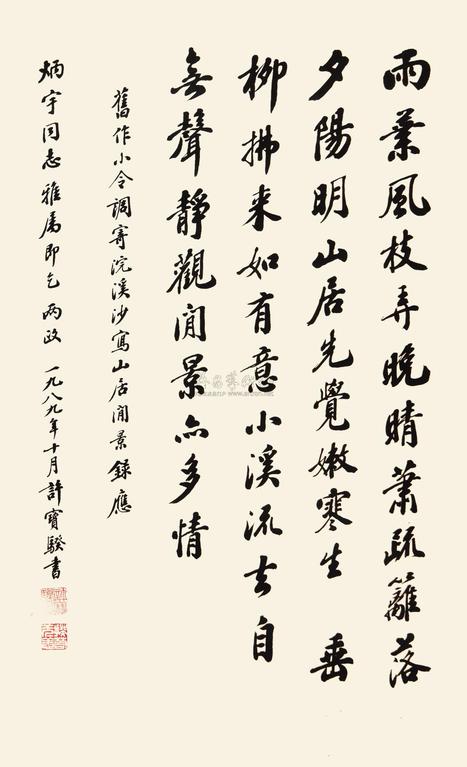 雨葉風枝弄晚晴蕭疏籬落
夕陽明山居先覺嫩寒生 垂
柳拂来如有意小溪流去自
無聲靜觀閒景亦多情
舊作小令調寄浣溪沙寫山居閒景錄應
炳宇同志雅屬即乞両政 一九八九年十月許寶騤書